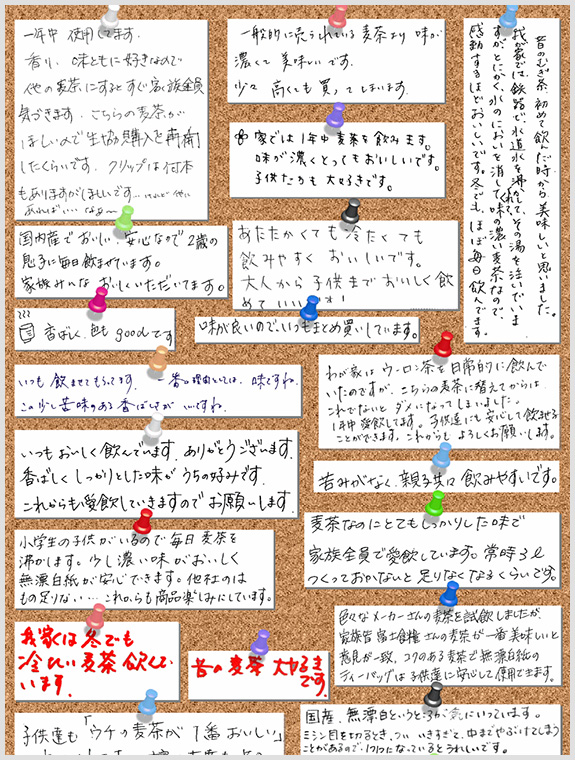 一年中 使用してます。
香り、味ともに好きなので
他の麦茶にするとすぐ家族全員
気づきます。こちらの麦茶が
ほしいので生協の購入を再開
したくらいです。クリップは何本
もありますがほしいです…けれど他に
あれば…
一般的に売られている麦茶より味が
濃くて美味しいです。
少々高くても買ってしまいます。
昔のむぎ茶、初めて飲んだ時から美味しいと思いました。
我が家では、鉄瓶で、水道水を沸かして、その湯を注いでいま
すが、とにかく、水のにおいを消してくれて味の濃い麦茶なので、
感動するほどおいしいです。冬でも、ほぼ毎日飲んでます。
家では1年中麦茶を飲みます。
味が濃くとってもおいしいです。
子供たちも大好きです。
国内産でおいしい、安心なので2歳の
息子に毎日飲ませています。
家族みんなおいしくいただいてます。
あたたかくても冷たくても
飲みやすくおいしいです。
大人から子供までおいしく飲
めていいです!
香ばしく、色もgoodです
味が良いのでいつもまとめ買いしています。
いつも飲ませてもらってます。一番の理由としては、味ですね。
この少し苦味のある香ばしさがいいですね。
わが家はウーロン茶を日常的に飲んで
いたのですが、こちらの麦茶に替えてからは
これでないとダメになってしまいました。
1年中愛飲してます。子供達にも安心して飲ませる
ことができます。これからもよろしくお願いします。
いつもおいしく飲んでいます。ありがとうございます。
香ばしくしっかりとした味がうちの好みです。
これからも愛飲していきますのでお願いします。
苦みがなく、親子共に飲みやすいです。
麦茶なのにとてもしっかりした味で
家族全員で愛飲しています。常時3ℓ
つくっておかないと足りなくなるくらいです。
小学生の子供がいるので毎日麦茶を
沸かします。少し濃い味がおいしく
無漂白紙が安心できます。他社のは
もの足りない…これからも商品楽しみにしています。
我家は冬でも
冷たい麦茶飲んで
います。
昔の麦茶大好き
です。
色々なメーカーさんの麦茶を試飲しましたが、
家族皆富士食糧さんの麦茶が一番美味しいと
意見が一致。コクのある麦茶で無漂白紙の
ティーバッグは子供に安心して使用できます。
子供達も「ウチの麦茶が1番おいしい」
国産、無漂白というところが気にいっています。
ミシン目を切るとき、ついいきすぎて、中までやぶけてしまう
ことがあるので、1つ1つになっているとうれしいです。